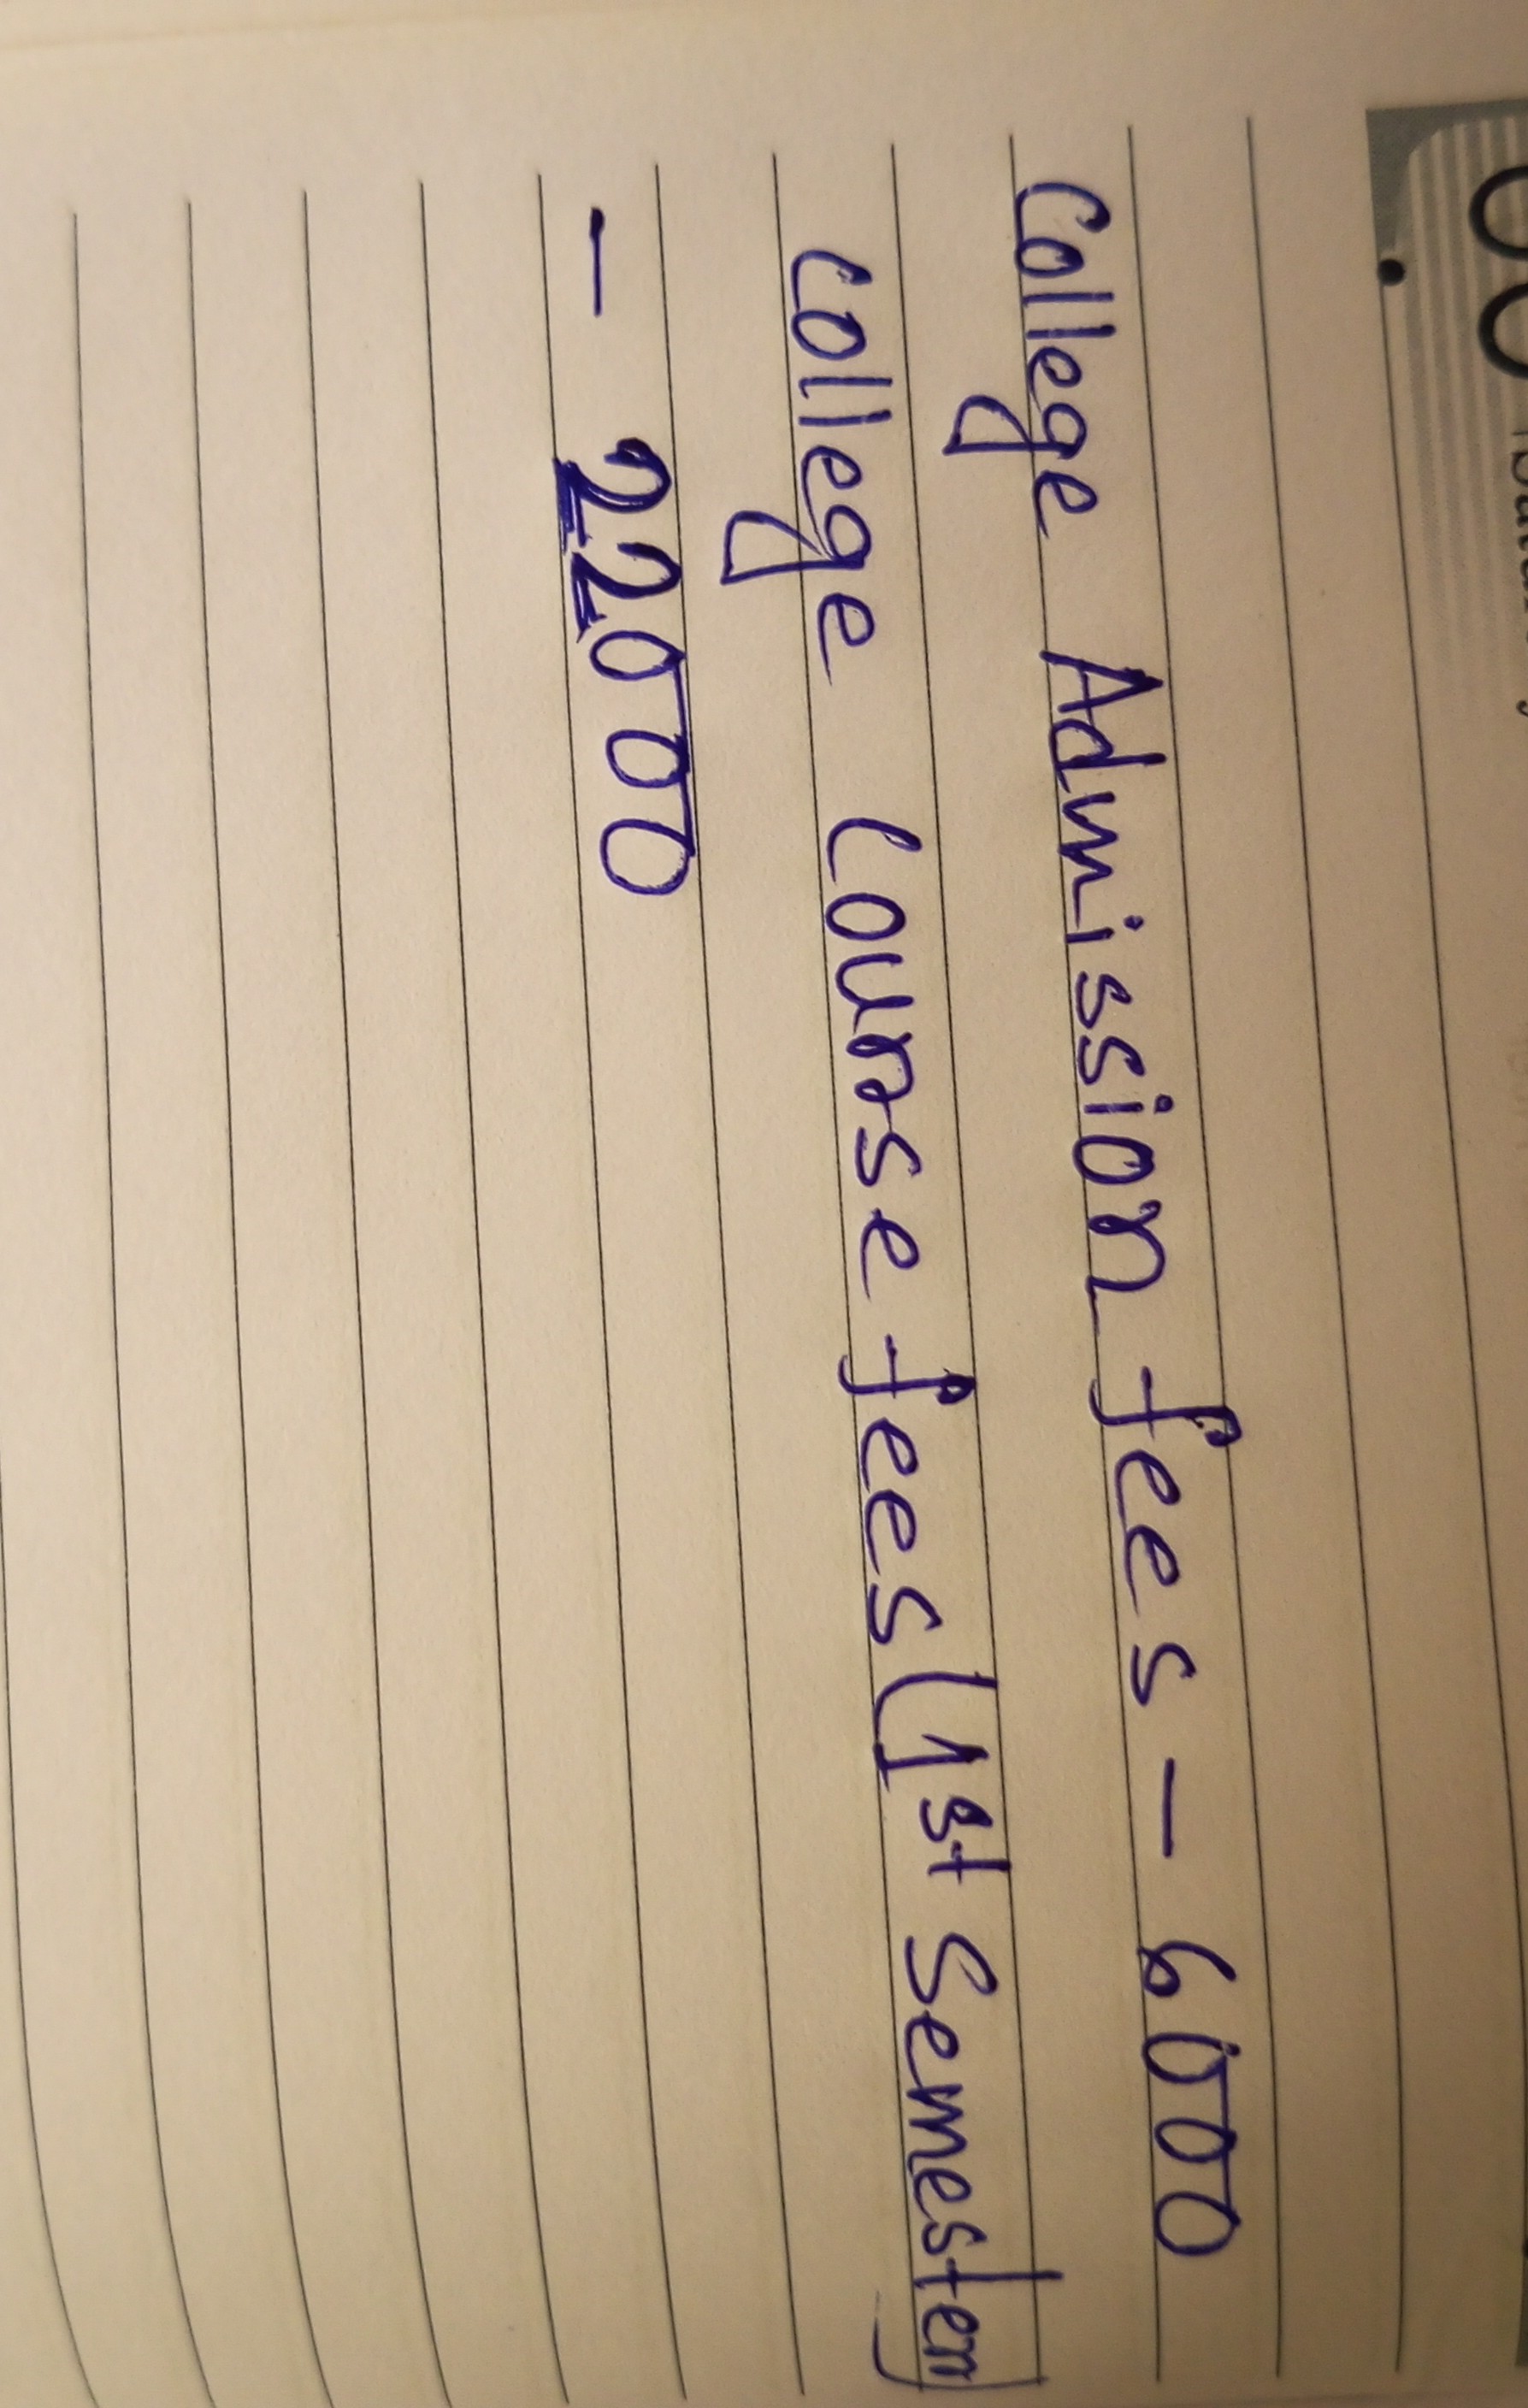 College Admission fees - 6000
College Course fees (1st Semester)
- 22000